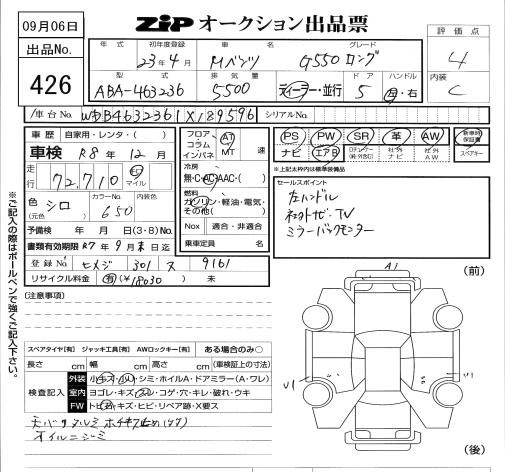 09月06日
ZIP オークション出品票
出品No. 426
年式 初年度登録 車名 グレード
23年4月 Mベンツ G550ロング
型式 排気量 ドア ハンドル
ABA-463236 5500 ディーラー・並行 5 左・右
評価点 4
内装 C
車台No. WDB4632361X189596 シリアルNo.
車歴 自家用・レンタ( )
車検 R8年12月
走行 72,710 Km マイル
色(元色) シロ カラーNo. 650 内装色
予備検 年 月 日(3・8)No.
書類有効期限 R7年9月末日迄
登録No. ヒメジ 301 ヌ 9161
リサイクル料金 有(¥18030) 未
フロア コラム インパネ AT MT 速
冷房 無・C・AC・AAC・( )
燃料 ガソリン・軽油・電気・その他( )
Nox 適合・非適合
乗車定員 名
PS PW SR 革 AW 新車時保証書
ナビ エアB 社外ナビ 社外AW スペアキー
*上記太枠内は標準装備品
セールスポイント
左ハンドル
ミラーバックモンター
※ご記入の際はボールペンで強くご記入下さい。
(注意事項)
スペアタイヤ[有] ジャッキ工具[有] AWロックキー[有] ある場合のみ○
長さ cm 幅 cm 高さ cm (車検証上の寸法)
検査記入
外装 小キズ・凹・シミ・ホイルA・ドアミラー(A・ワレ)
室内 ヨゴレ・キズ・スレ・コゲ・穴・キレ・破れ・ウキ
FW トビ石・キズ・ヒビ・リペア跡・X要ス
オイルニジミ
(前)
A1
U1
U1
(後)